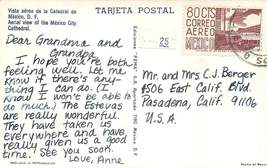 Vista aérea de la Catedral de
México, D. F.
Aerial view of the México City
Cathedral.
TARJETA POSTAL
Dear Grandma and
Grandpa,
I hope you're both
feeling well. Let me
know if there's any-
thing I can do. (I
know I won't be able to
do much.) The Estevas
are really wonderful.
They have taken us
everywhere and have
really given us a good
time. See you soon.
Love, Anne
25
80 CTS
CORREO
AEREO
MEXICO
Mr. and Mrs C.J. Berger
1506 East Calif. Blvd.
Pasadena, Calif. 91106
U.S.A.